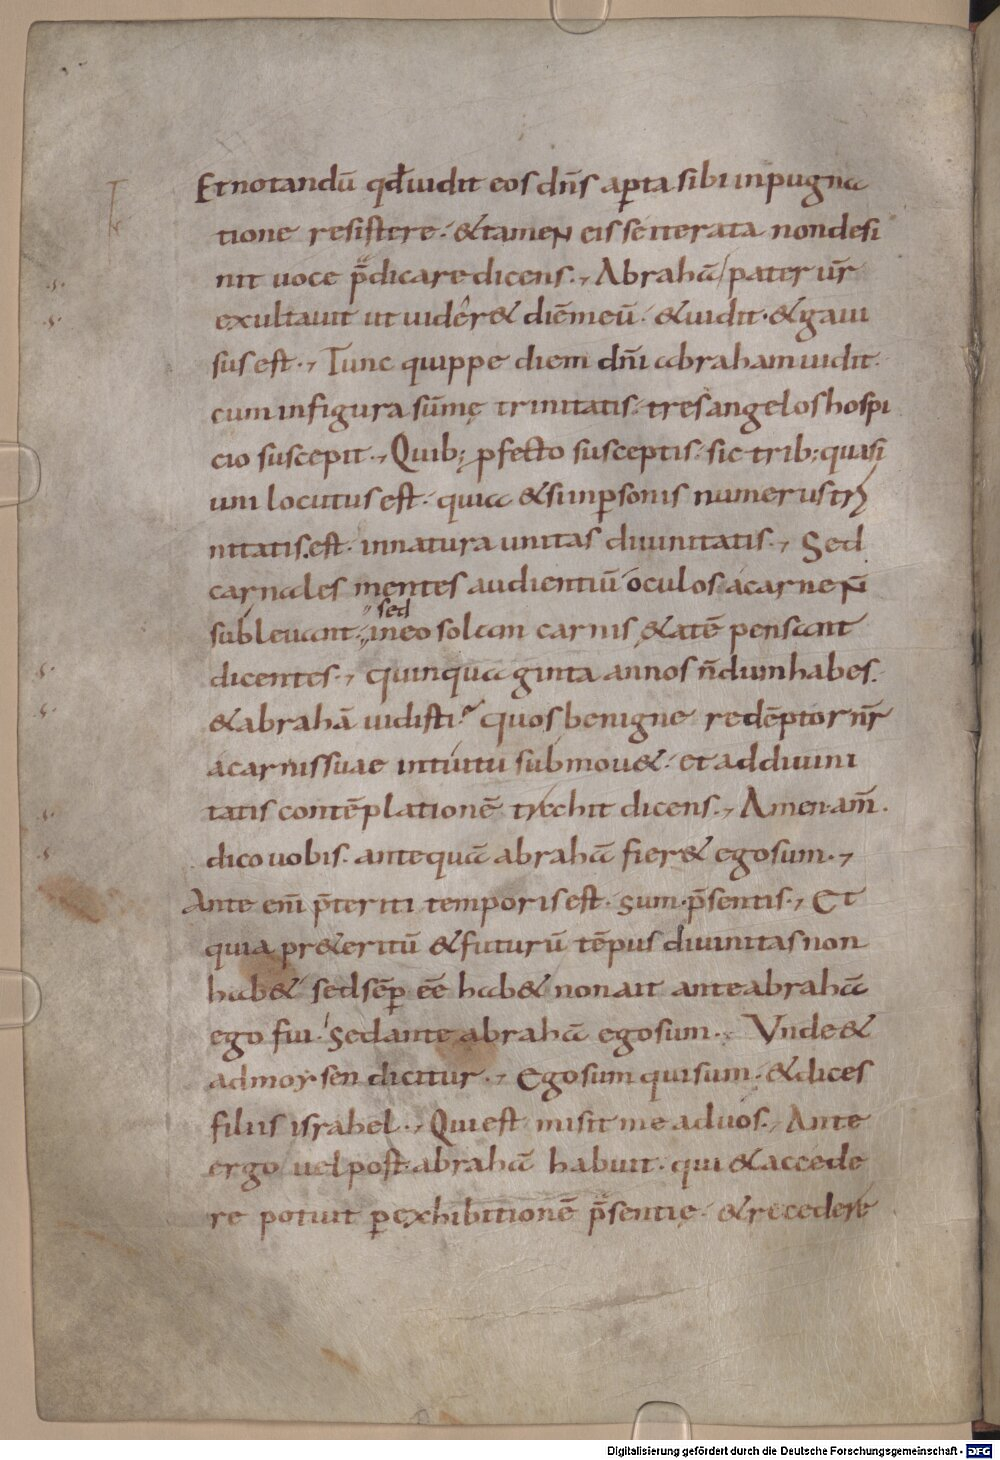 Et notandū qđ uidit eos dn̄s aꝑta sibi inpugna
tione resistere· &tameN eis se iterata non desi
nit uoce p̄dicare dicens·, Abrahā pater ur̄
exultauit ut uider& diēmeū· &uidit· &gaui
sus est·, Tunc quippe diem dn̄i abraham uidit·
cum in figura sūmę trinitatis· tres angelos hospi
cio suscepit·, Quib; ꝓfecto susceptis· sic trib; quasi
uni locutus est· quia &si in ꝑsonis numerus tri
nitatis est· in natura unitas diuinitatis·, Sed
carnales mentes audientiū oculos a carne N̄
sed
subleuant· in eo solam carnis &atē pensant
dicentes·, quinquaginta annos n̄dum habes·
&abrahā uidisti? quos benigne redēptor nr̄
a carnis suae intuitu submou&· et ad diuini
tatis contēplationē trahit dicens·, Amen am̄·
dico uobis· ante quā abrahā fier& ego sum·,
Ante eni̅ p̄teriti temporis est· sum· p̄sentis·, Et
quia pr&eritū &futurū tēpus diuinitas non
hab& sed sēꝑ eē hab& non ait ante abrahā
ego fui· Sed ante abrahā ego sum·, Vnde &
ad moysen dicitur·, Ego sum qui sum· &dices
filiis israhel·, Qui est misit me ad uos·, Ante
ergo uel post abrahā habuit· qui &accede
re potuit ꝑ exhibitionē p̄sentię· &recedere
Digitalisierung gefördert durch die Deutsche Forschungsgemeinschaft - DFG